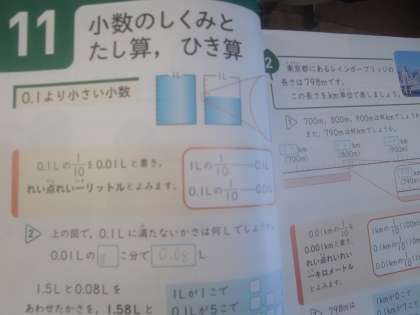 11
小数のしくみと
たし算，ひき算
0.1より小さい小数
1L
0.1Lの1/10を0.01Lと書き，
れい点れい一リットルとよみます。
1Lの1/10 0.1L
0.1Lの1/10
2 上の図で，0.1Lに満たないかさは何Lでしょ
0.01Lの 8 こ分で 0.08 L
1.5Lと0.08Lを
あわせたかさを，1.58Lと
1Lが1こで
0.1Lが5こで
2
東京都にあるレインボーブリッジの
長さは798mです。
この長さをkm単位で表しましょう。
1 700m，800m，900mは何kmでしょうか。
また，790mは何kmでしょうか。
km
(700m)
km
(800m)
km
(900m)
(790m)
0.01kmの1/10を
0.001kmと書き，
れい点れいれい
一キロメートル
とよみます。
1kmの1/10
798mは